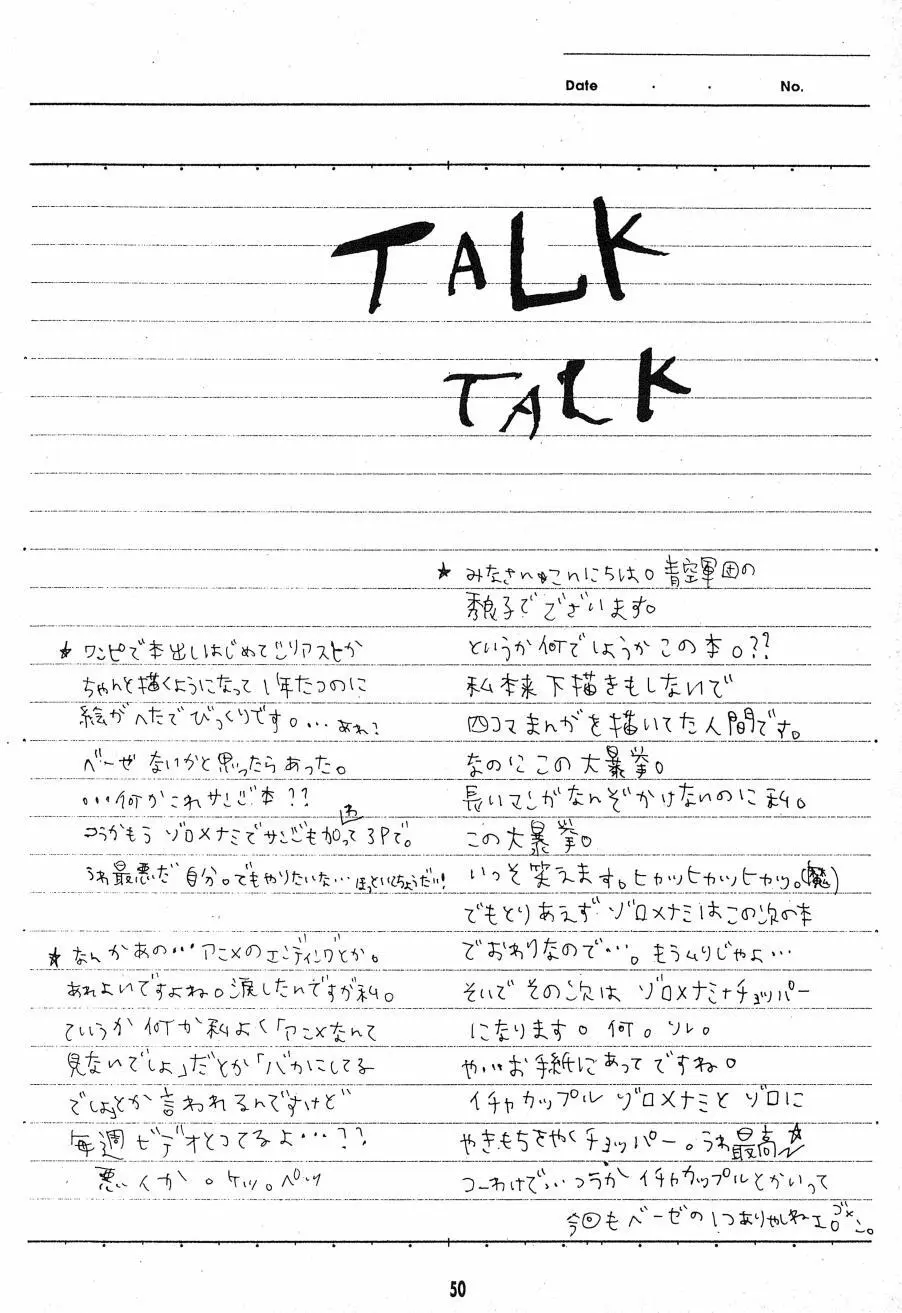 Date . . No.
TALK
TALK
★ みなさんこんにちは。青空軍団の
秀良子でございます。
というか何でしょうかこの本。??
私本来下描きもしないで
四コマまんがを描いてた人間です。
なのにこの大暴挙。
長いマンガなんぞかけないのに私。
この大暴挙。
いっそ笑えます。ヒカッヒカッヒカッ。(魔)
でもとりあえずゾロ×ナミはこの次の本
でおわりなので…。もうムリじゃよ…
そいでその次は ゾロ×ナミ+チョッパー
になります。何。ソレ。
やいいお手紙にあってですね。
イチャカップル ゾロ×ナミと ゾロに
やきもちをやくチョッパー。うわ最高☆
つーわけで… つうか イチャカップルとかいって
今回もベーゼの1つありゃしねェ。ゴメン。
★ ワンピで本出しはじめて
ちゃんと描くようになって1年たつのに
絵がへたでびっくりです。…あれ?
ベーゼないかと思ったらあった。
…何かこれサンジ本??
つうかもう ゾロ×ナミでサンジも加わって3Pで。
うわ最悪だ自分。でもやりたいな…ほっといてちょうだい!
★ なんかあの…アニメのエンディングとか。
あれよいですよね。涙したんですが私。
ていうか何か私よく「アニメなんて
見ないでしょ」だとか「バカにしてる
でしょ」とか言われるんですけど
毎週ビデオとってるよ…??
悪いか。ケッ。ペッ
50